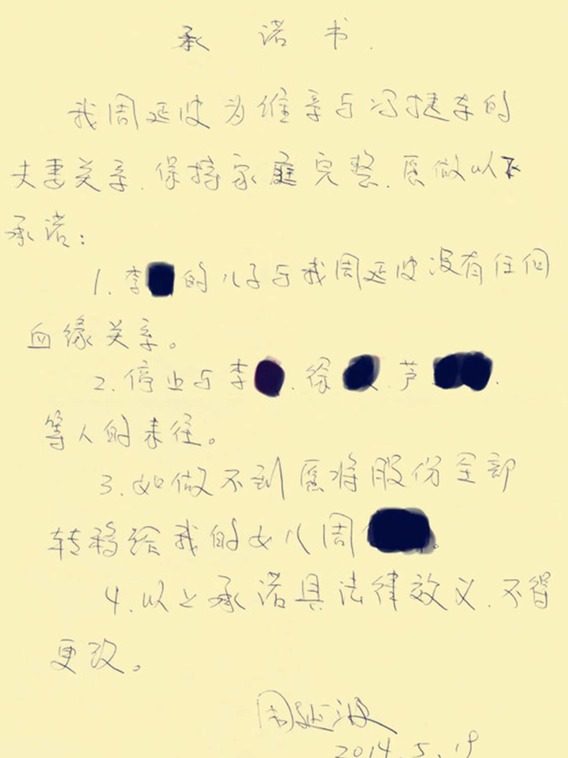 承诺书.
我周延波为维系与冯捷东的
夫妻关系.保持家庭完整.愿做以下
承诺：
1.李的儿子与我周延波没有任何
血缘关系。
2.停止与李.徐.芦.
等人的来往。
3.如做不到愿将股份全部
转移给我的女儿周.
4.以上承诺具法律效义.不得
更改。
周延波
2014.5.19